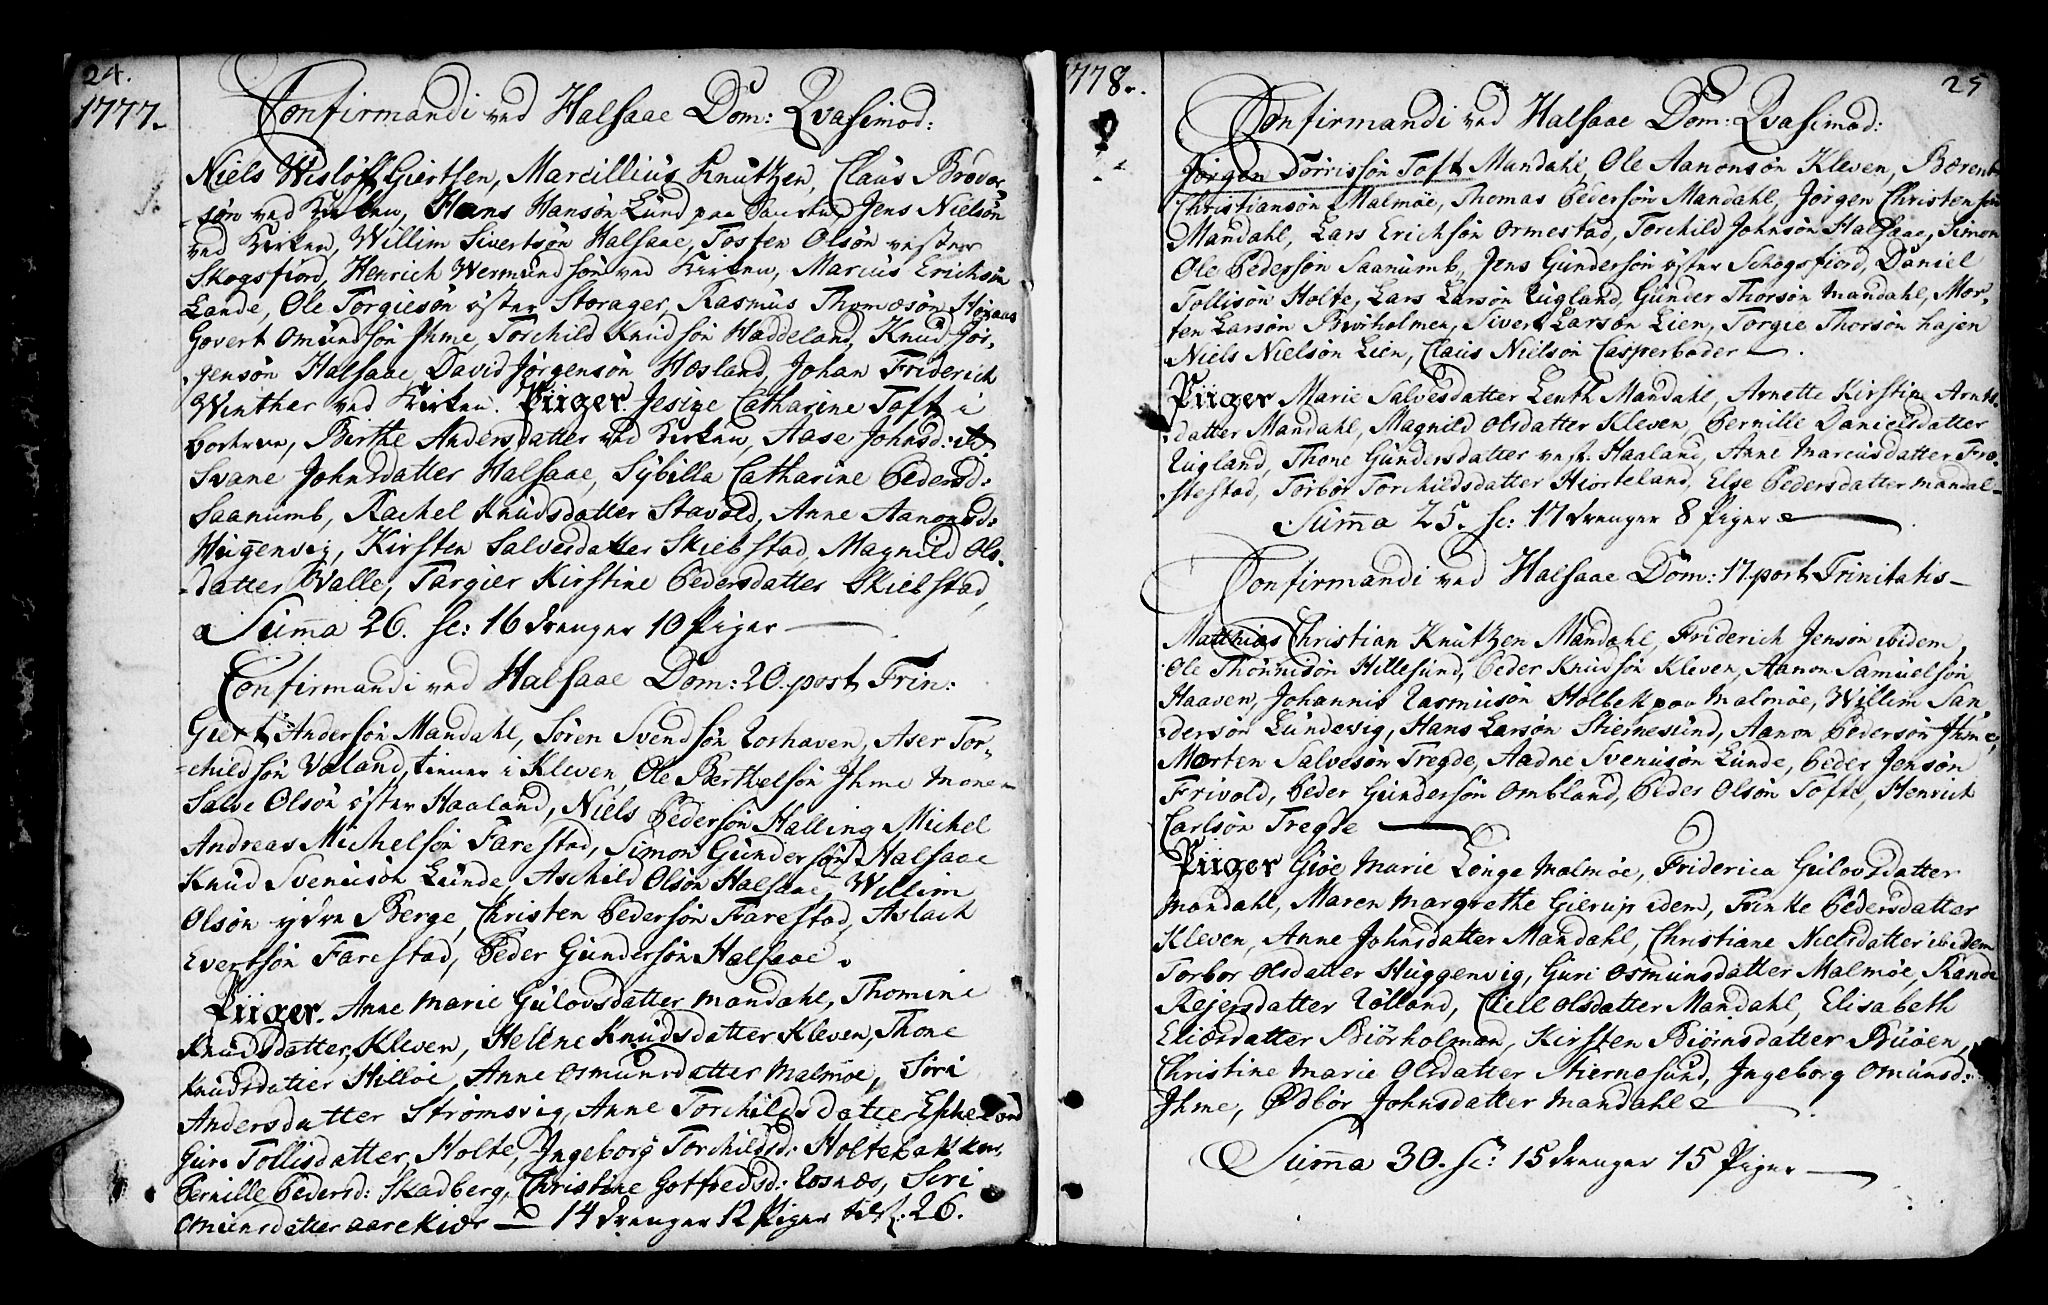 24.
1777.
Confirmandi ved Halsaae Dom: Qvasimod:
Niels Wisløff Giertsen, Marcillius Knutzen, Claus Brodor-
søn ved Kirken, Hans Hansøn Lund paa Jens Nielsøn
ved Kirken, Willim Sivertsøn Halsaae, Tosten Olsøn vester
Skogsfiord, Henrich Wermundsøn ved Kirken, Marcus Erichsøn
Lande, Ole Torgiesøn øster Storager, Rasmus Thomæsøn
Govert Omundsøn Ihme, Torchild Knudsøn Haddeland, Knud Jør-
gensøn Halsaae, David Jørgensøn Hesland, Johan Friderich
Winther ved Kirken. Piiger. Jesine Catharine Toft i
Birthe Andersdatter ved Kirken, Aase Johnsd:
Svane Johnsdatter Halsaae, Sybilla Catharine Pedersd:
Saanumb, Rachel Knudsdatter Stavold, Anne Aanonsd:
Huggenvig, Kirsten Salvesdatter Skiebstad, Magnild Ols-
datter Valle, Targier Kirstine Pedersdatter Skiebstad,
Summa 26. sc: 16 drenger 10 Piger
Confirmandi ved Halsaae Dom: 20. post Trin:
Giert Andersøn Mandahl, Søren Svendsøn Roshaven, Aser Tor-
childsøn Valand, tienner i Kleven, Ole Berthelsøn Ihme
Salve Olsøn øster Haaland, Niels Pedersøn Halling Michel
Andreas Michelsøn Farestad, Simon Gundersøn Halsaae
Knud Svenisøn Lunde, Aschild Olsøn Halsaae, Willim
Olsøn ydre Berge, Christen Pedersøn Farestad, Aslach
Evertsøn Farestad, Peder Gundersøn Halsaae.
Piiger. Anne Marie Gulovsdatter Mandahl, Thomine
Knudsdatter Kleven, Helene Knudsdatter Kleven, Thone
Knudsdatter Hilløe, Anne Osmunsdatter Malmøe, Siri
Andersdatter Strømsvig, Anne Torchildsdatter
Guri Tollisdatter Holte, Ingeborg Torchildsd: Holtebakken,
Pernille Pedersd: Skadberg, Christine Gotfredsd: Rosnæs, Siri
Omunsdatter Aarekiær 14 drenger 12 Piger 26.
1778.
25
Confirmandi ved Halsaae Dom: Qvasimod:
Jørgen Torrissøn Toft Mandahl, Ole Aanonsøn Kleven, Bærent
Christiansøn Malmøe, Thomas Pedersøn Mandahl, Jørgen Christensøn
Mandahl, Lars Erichsøn Ormestad, Torchild Johnsøn Halsaae, Simon
Ole Pedersøn Saanumb, Jens Gundersøn øster Schogsfiord, Daniel
Tollisøn Holte, Lars Larsøn Rugland, Gunder Thorsøn Mandahl, Mor-
ten Larsøn Biørholmen, Sivert Larsøn Lien, Torgie Thorsøn hajen
Niels Nielsøn Lien, Claus Nielsøn Casperboder.
Piiger Marie Salvesdatter Lenth Mandahl, Arnette Kirstine Arnts-
datter Mandahl, Magnild Olsdatter Kleven, Pernille Danielsdatter
Rugland, Thone Gundersdatter vest. Haaland, Anne Marcusdatter Fro-
stestad, Torbor Torchildsdatter Hiorteland, Else Pedersdatter Mandal
Summa 25. sc: 17 drenger 8 piger
Confirmandi ved Halsaae Dom: 17. post Trinitatis
Matthias Christian Knutzen Mandahl, Friderich Jensøn ibidem,
Ole Thonnisøn Hillesund, Peder Knudsøn Kleven, Aanon Samuelsøn
Haaven, Johannis Rasmusøn Holbek paa Malmøe, Willim San-
dersøn Lundevig, Hans Larsøn Stiernesund, Aanon Pedersøn Ihme,
Morten Salvesøn Tregde, Aadne Svenisøn Lunde, Peder Jensøn
Frivold, Peder Gundersøn Ombland, Peder Olsøn Tofte, Henrich
Carlsøn Tregde
Piiger Giøe Marie Longe Malmøe, Friderica Gulovsdatter
Mandahl, Maren Margrethe Gierup idem, Frinke Pedersdatter
Kleven, Anne Johnsdatter Mandahl, Christiane Nielsdatter ibidem
Torbor Olsdatter Huggenvig, Guri Osmunsdatter Malmøe, Randi
Rejersdatter Rølland, Eleil Olsdatter Mandahl, Elisabeth
Eliærsdatter Biørholman, Kirsten Biørnsdatter Buøen,
Christine Marie Olsdatter Stiernesund, Ingeborg Omunsd:
Ihme, Ødbor Johnsdatter Mandahl
Summa 30. sc: 15 drenger 15 Piger